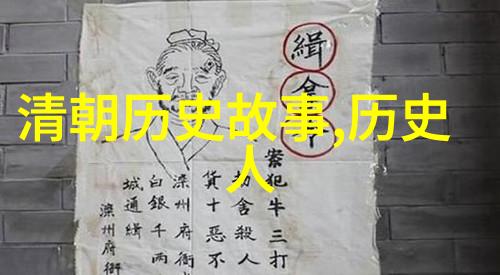 清朝历史故事,历史
人
緝拿
案犯牛三打
舍殺人
貨十惡不
滦州府衙
白銀千兩
城通緝
滦州府衙